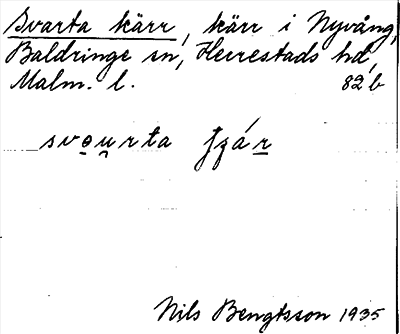 Svarta kärr, kärr i Nyvång,
Baldringe sn, Herrestads hd,
Malm. l. 82 b
svou̯rta
Nils Bengtsson 1935